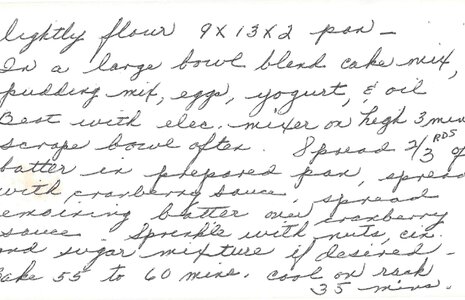 lightly flour 9x13x2 pan -
In a large bowl blend cake mix,
pudding mix, eggs, yogurt, & oil
Beat with elec. mixer on high 3 min
scrape bowl often. Spread 2/3 RDS of
batter in prepared pan, spread
with cranberry sauce, spread
emaining blatter over cranberry
sauce. Sprinkle with nuts, cin.
nd sugar mixture if desired -
Bake 55 to 60 mins. cool on rack
35 mins.